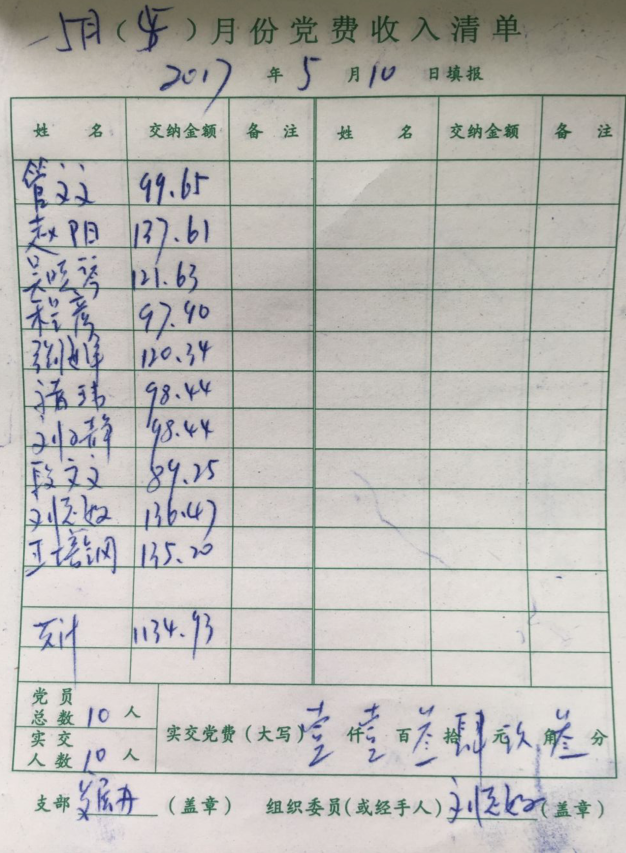 5月（ ）月份党费收入清单
2017年5月10日填报
姓 名 交纳金额 备 注 姓 名 交纳金额 备 注
管文文 99.65
赵阳 137.61
吴晓琴 121.63
程彦 97.90
120.34
98.44
刘文静 98.44
段文文 89.25
136.47
王培钢 135.20
共计 1134.93
党员总数10人
实交人数10人
实交党费（大写）壹仟壹百叁拾肆元玖角叁分
支部（盖章） 组织委员（或经手人）（盖章）